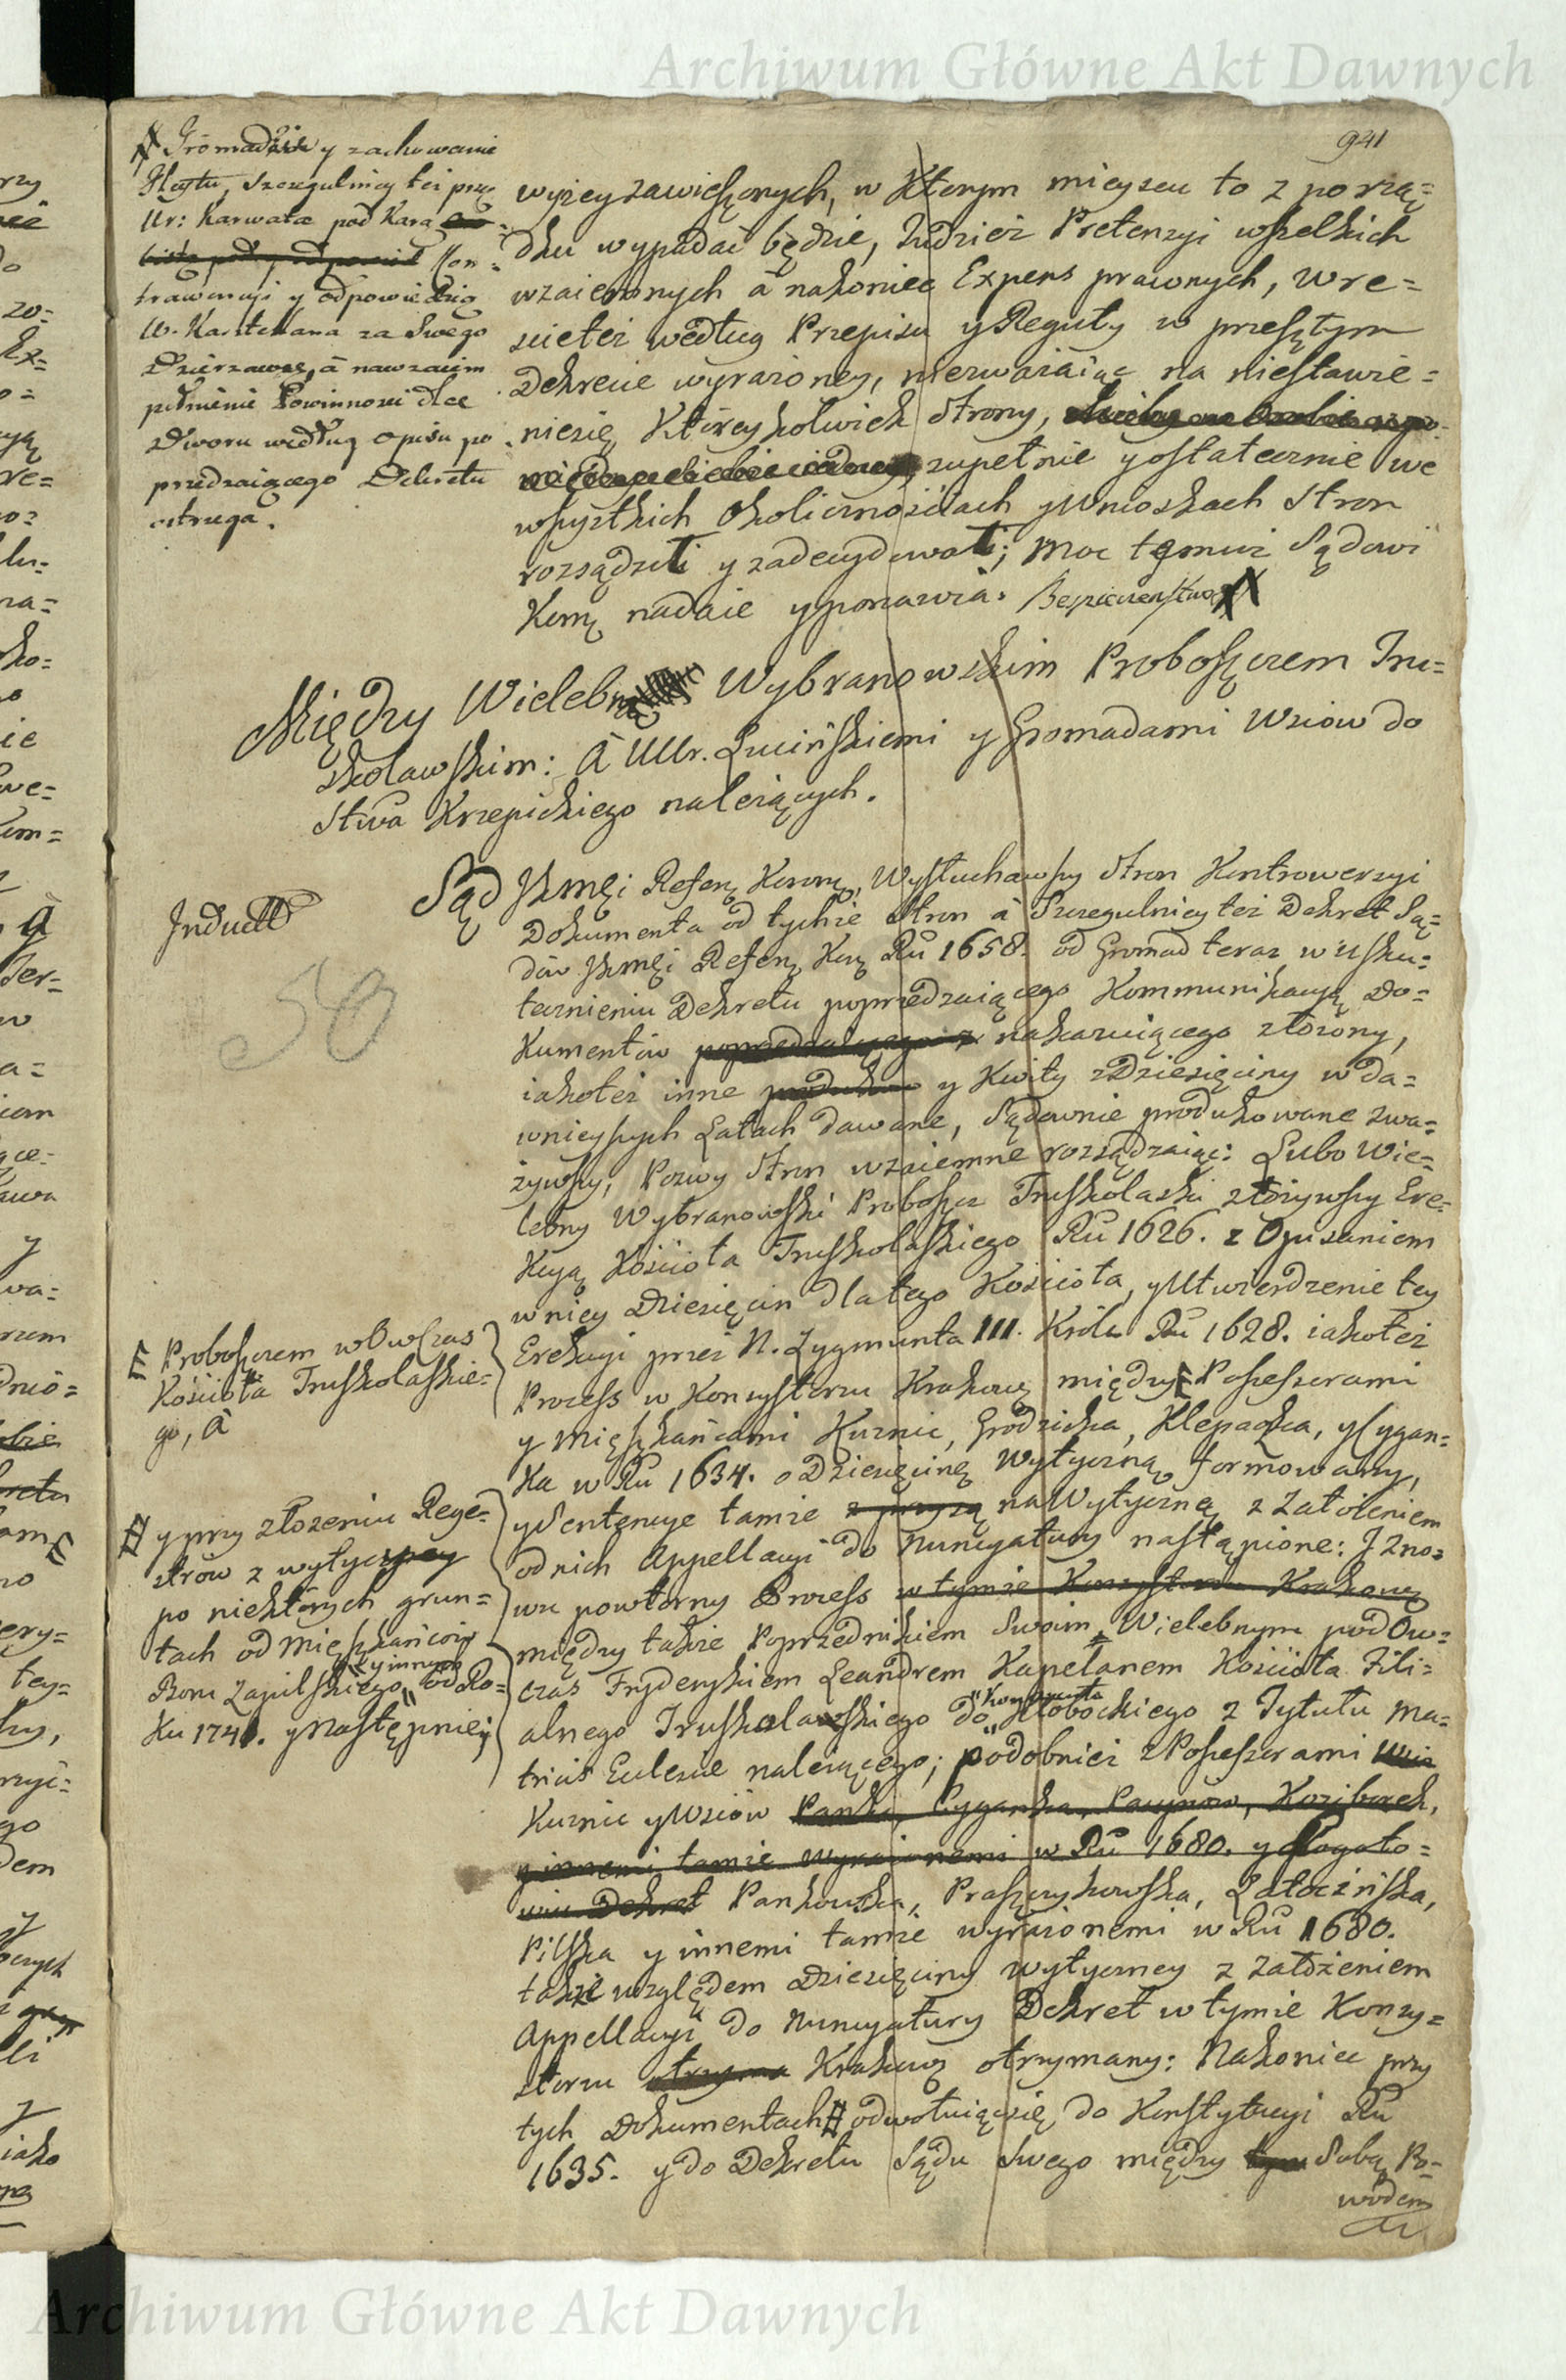 Archiwum Główne Akt Dawnych
941
Gromadzie y zachowanie
Usętu, Szczegulniey też przez
Ur: Karwata pod Karą
Kon=
trawencyi y odpowiedzią
W. Kasztellana za Swego
Dzierzawcę, à nawzaiem
pełnienie Powinności dla
Dworu według opisu po
przedzaiącego Dekretu
ostrzega.
wyżey zawieszonych, w Ktorym mieyscu to z porzą=
dku wypadać będzie, tudzież Pretensyi wszelkich
wzaiemnych à nakoniec Expens prawnych, w re=
scieteż według Przepisu y Reguły w przeszłym
Dekrecie wyrażoney, niezważaiąc na niestawie=
niesię Któreykolwiek Strony,
zupełnie y ostatecznie we
wszystkich Okolicznościach y Wnioskach Stron
rozsądził y zadecydował; Moc temuż Sądowi
Komę nadaie y ponawia. Bespieczenstwo
Między Wieleb Wybranowskim Proboszczem Tru=
skolawskim: à UUr. Lucińskiemi y Gromadami Wsiow do
Stwa Krzepickiego należących.
Induct
50
Sąd JKmci Refer. Koron. Wysłuchawszy Stron Kontrowersyi
Dokumenta od tychże Stron à Szczegulniey też Dekret Są=
dów JKmci Refer. Kor. Ru 1658. od Gromad teraz w usku=
tecznieniu Dekretu poprzedzaiącego Kommunikacyą Do=
Kumentów poprzedzaiącego z nakazuiącego złożony,
iakoteż inne y Kwity z Dziesięciny w da=
wnieyszych Latach dawane, Sądownie produkowane zwa=
żywszy, Pozwy Stron wzaiemne rozsądzaiąc: Lubo Wie=
lebny Wybranowski Proboszcz Truskolaski złożywszy Ere=
Kcyą Kościoła Truskolaskiego Ru 1626. z Opisaniem
w niey Dziesięcin dla tego Kościoła, y Utwierdzenie tey
Erekcyi przez N. Zygmunta III. Króla Ru 1628. iakoteż
Process w Konsystorzu Krakow. między Possessorami
Proboszczem w Ow Czas
Kościoła Truskolaskie=
go, à
y Mieszkańcami Kuznic, Grodziska, Klepaczka, y Cygan=
Ka w Ru 1634. o Dziesięcinę Wytyczną formowany,
y Sentencye tamże na Wytyczną z Założeniem
od nich Appellacyi do Nuncyatury nastąpione: I zno=
wu powtórny Process w tymże Konsystorzu Krakow
między takze Poprzednikiem Swoim, Wielebnym pod Ow=
czas Fryderykiem Leandrem Kapelanem Kościoła Fili=
alnego Truskolawskiego do Kłobockiego z Tytułu ma=
tricis Eclesiae należącego; podobnież z Possessorami
y przy złożeniu Rege=
strów z wytyczney
po niektórych grun=
tach od Mieszkańców
y innych
od Ro=
Ku 1741. y Następniey
Kuznic y Wsiów Panka, Cyganka, Pacynów,
y innemi tamże wyrażonemi w Ru 1680. y
Dekret Pankowska, Praszczykowska, Łatocińska,
Pilska y innemi tamże wyrażonemi w Ru 1680.
także względem Dziesięciny wytyczney z Założeniem
Appellacyi do Nuncyatury Dekret w tymże Konsy=
storzu Krakow. otrzymany: Nakoniec przy
tych Dokumentach odwołuiącsię do Konstytucyi Ru
1635. y do Dekretu Sądu Swego między Sobą Po=
wodem
Archiwum Główne Akt Dawnych